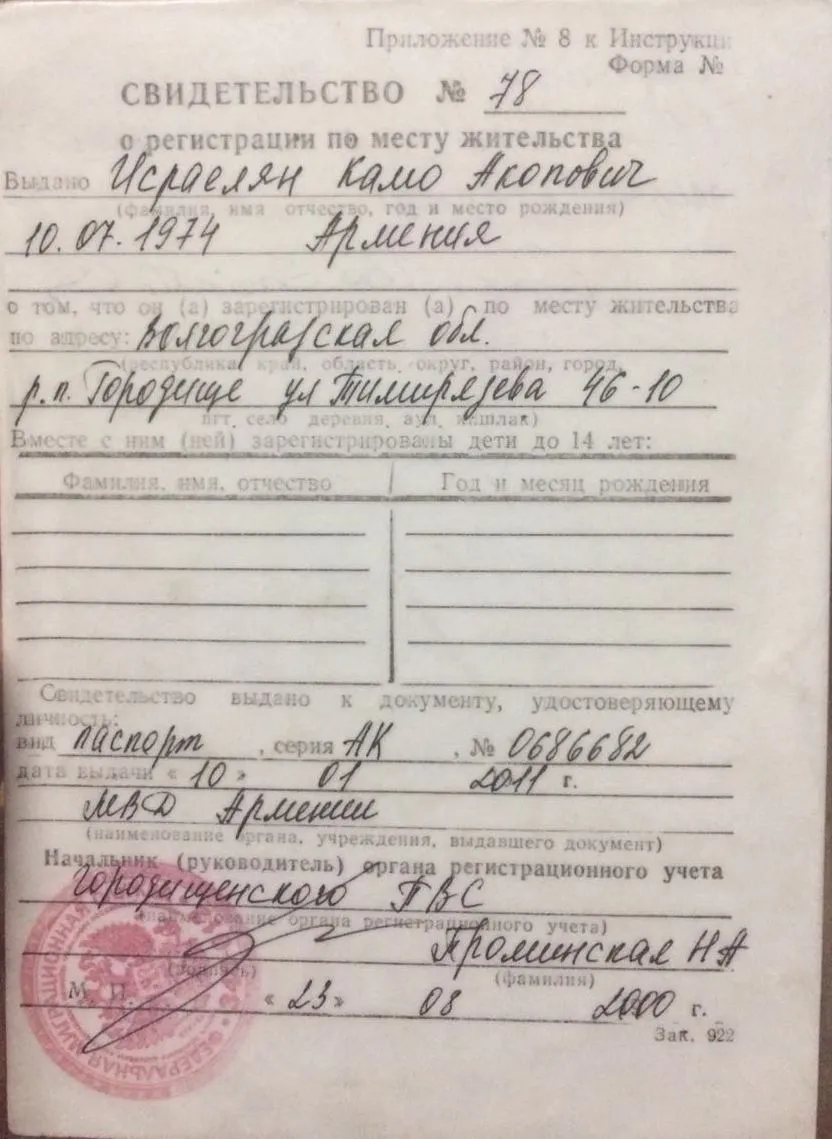 Приложение № 8 к Инструкци
Форма №
СВИДЕТЕЛЬСТВО № 78
о регистрации по месту жительства
Выдано Исраелян Камо Акопович
(фамилия, имя отчество, год и место рождения)
10.07.1974 Армения
о том, что он (а) зарегистрирован (а) по месту жительства
по адресу: Волгоградская обл.
(республика край, область округ, район, город,
р.п. Городище ул Тимирязева 46-10
пгт, село деревня, аул, кишлак)
Вместе с ним (ней) зарегистрированы дети до 14 лет:
Фамилия, имя, отчество | Год и месяц рождения
Свидетельство выдано к документу, удостоверяющему
личность:
вид паспорт, серия АК, № 0686682
дата выдачи « 10 » 01 2011 г.
МВД Армении
(наименование органа, учреждения, выдавшего документ)
Начальник (руководитель) органа регистрационного учета
Городищенского ПВС
(наименование органа регистрационного учета)
Проминская НА
(подпись) (фамилия)
М. П. « 23 » 08 2000 г.
Зак. 922
ФЕДЕРАЛЬНАЯ МИГРАЦИОННАЯ